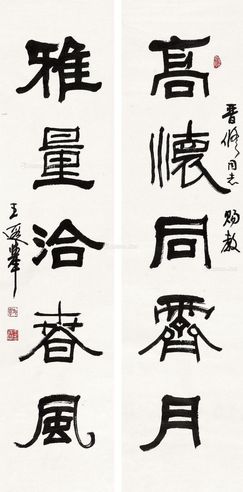 高懷同霽月
晋修同志
赐教
雅量洽春風
王遐舉